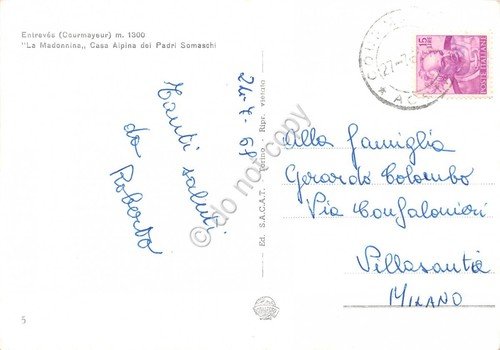 Entrevés (Courmayeur) m. 1300
"La Madonnina,, Casa Alpina dei Padri Somaschi
24-7-67
Tanti saluti
da
Roberto
Ed. S.A.C.A.T. - Torino - Ripr. vietata
15
LIRE
POSTE ITALIANE
27-7
Alla famiglia
Gerardo Colombo
Via Confalonieri
Villasanta
MILANO
5
do not copy